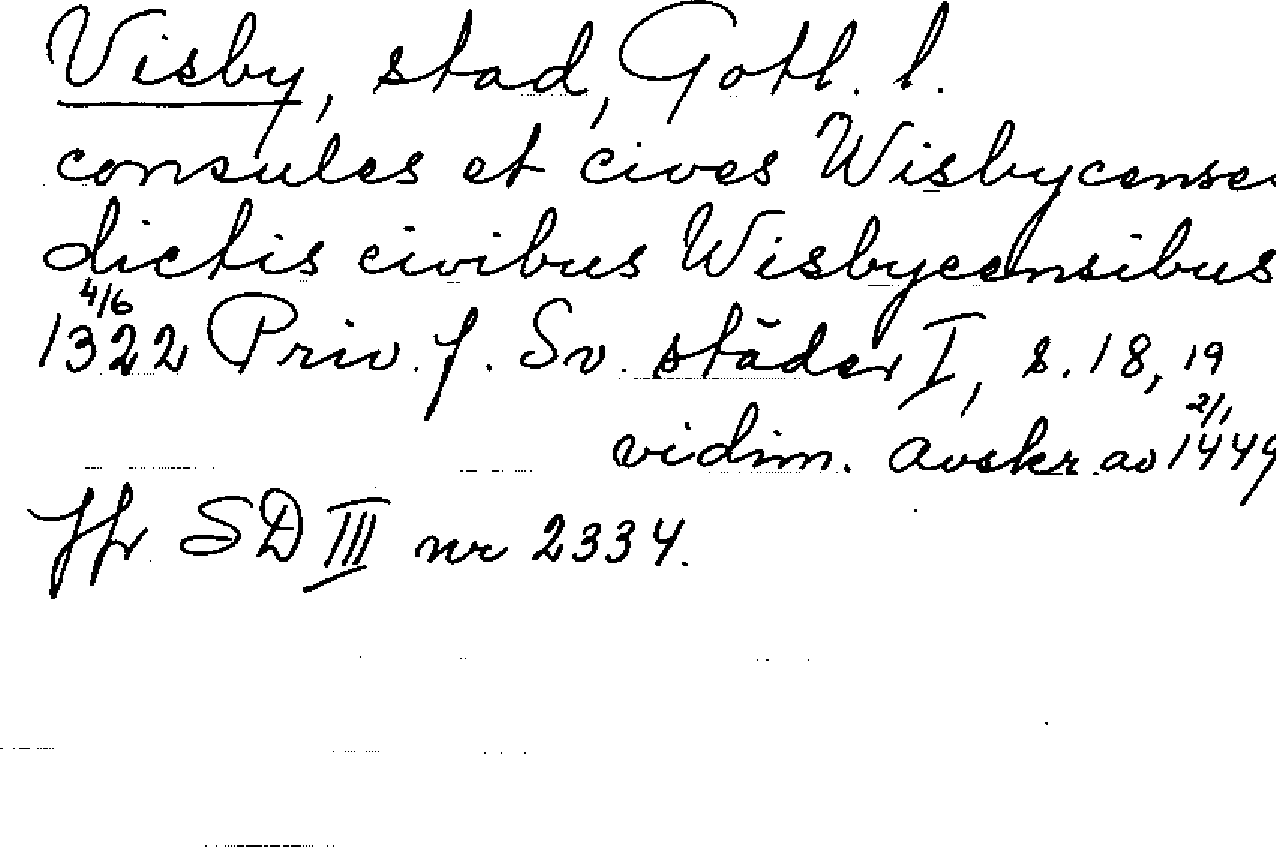 Visby, stad, Gotl. l.
consules et cives Wisbycenses
dictis civibus Wisbycensibus
4/6
1322 Priv. f. Sv. städer I, s. 18, 19
2/1
vidim. avskr av 1449
Jfr SD III nr 2334.